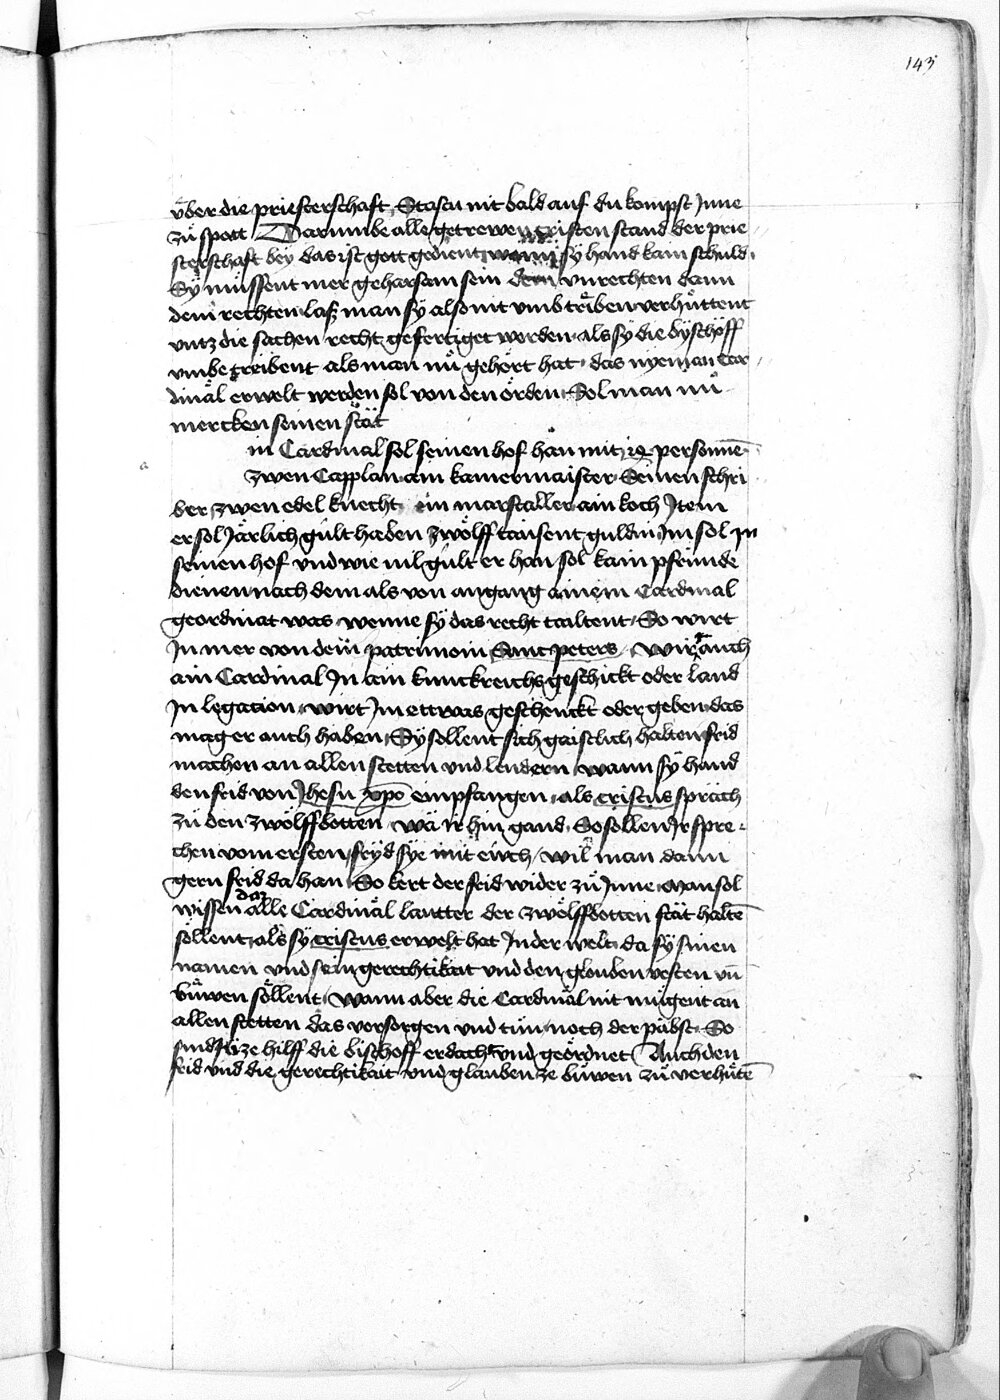 143
v̈ber die priesterschafft Stastu nit bald auf du kompst Inne
zů spott Darumbe alle getrewen cristen stand der prie
sterschaft bey das ist gott gedient wann sÿ hand kain schuld
Sÿ mussent mer gehorsam sein dem vnrechten dann
dem rechten laß man sÿ also nit vmb triben verhuͤttent
vntz die sachen recht gefertiget werden als sÿ die bÿschöff
vmbe treibent als man nů gehört hat das nyeman Car
dinäl erwelt werden sol von den örden Sol man nů
mercken seinen stät
in Cardinal sol seinen hof han mit personnē
zwen Capplan ain kamermaister Seinen schri
ber zwen edel knecht ein marstaller ain koch Item
er sol Järlich gült haben zwölff tausent guldin Im sol In
seinen hof vnd wie uil gült er han sol kain pfrunde
dienen nach dem als von angang ainem Cardinal
geordinat was wenne sÿ das recht tailtent So wirt
In mer von dem patrimoin Sant peters wirt auch
ain Cardinal In ain kunckreichs geschickt oder land
In legacion wirt Im ettwas geschenckt oder geben das
mag er auch haben Sÿ sollent sich gaistlich halten frid
machen an allen stetten vnd lendern wann sÿ hand
den frid von Jhesu xpo empfangen als cristus sprach
zů den zwölffbotten wa ir hin gand So sollen Ir spre
chen vom ersten frÿd sÿe mit eüch wil man dann
gern frid da han So kert der frid wider zů Inne Man sol
wissen das alle Cardinäl lautter der zwölffbotten stät haltē
söllent als sÿ cristus erwelt hat In der welt da sÿ sinen
namen vnd sein gerechtikait vnd den glouben vesten vn̄
buwen söllent Wann aber die Cardinäl nit mügent an
allen stetten das versorgen vnd tůn noch der päbst So
sind ze hilff die bischoff erdacht vnd geördnet Auch den
frid vnd die gerechtikait vnd glauben ze buwen zů verhütē